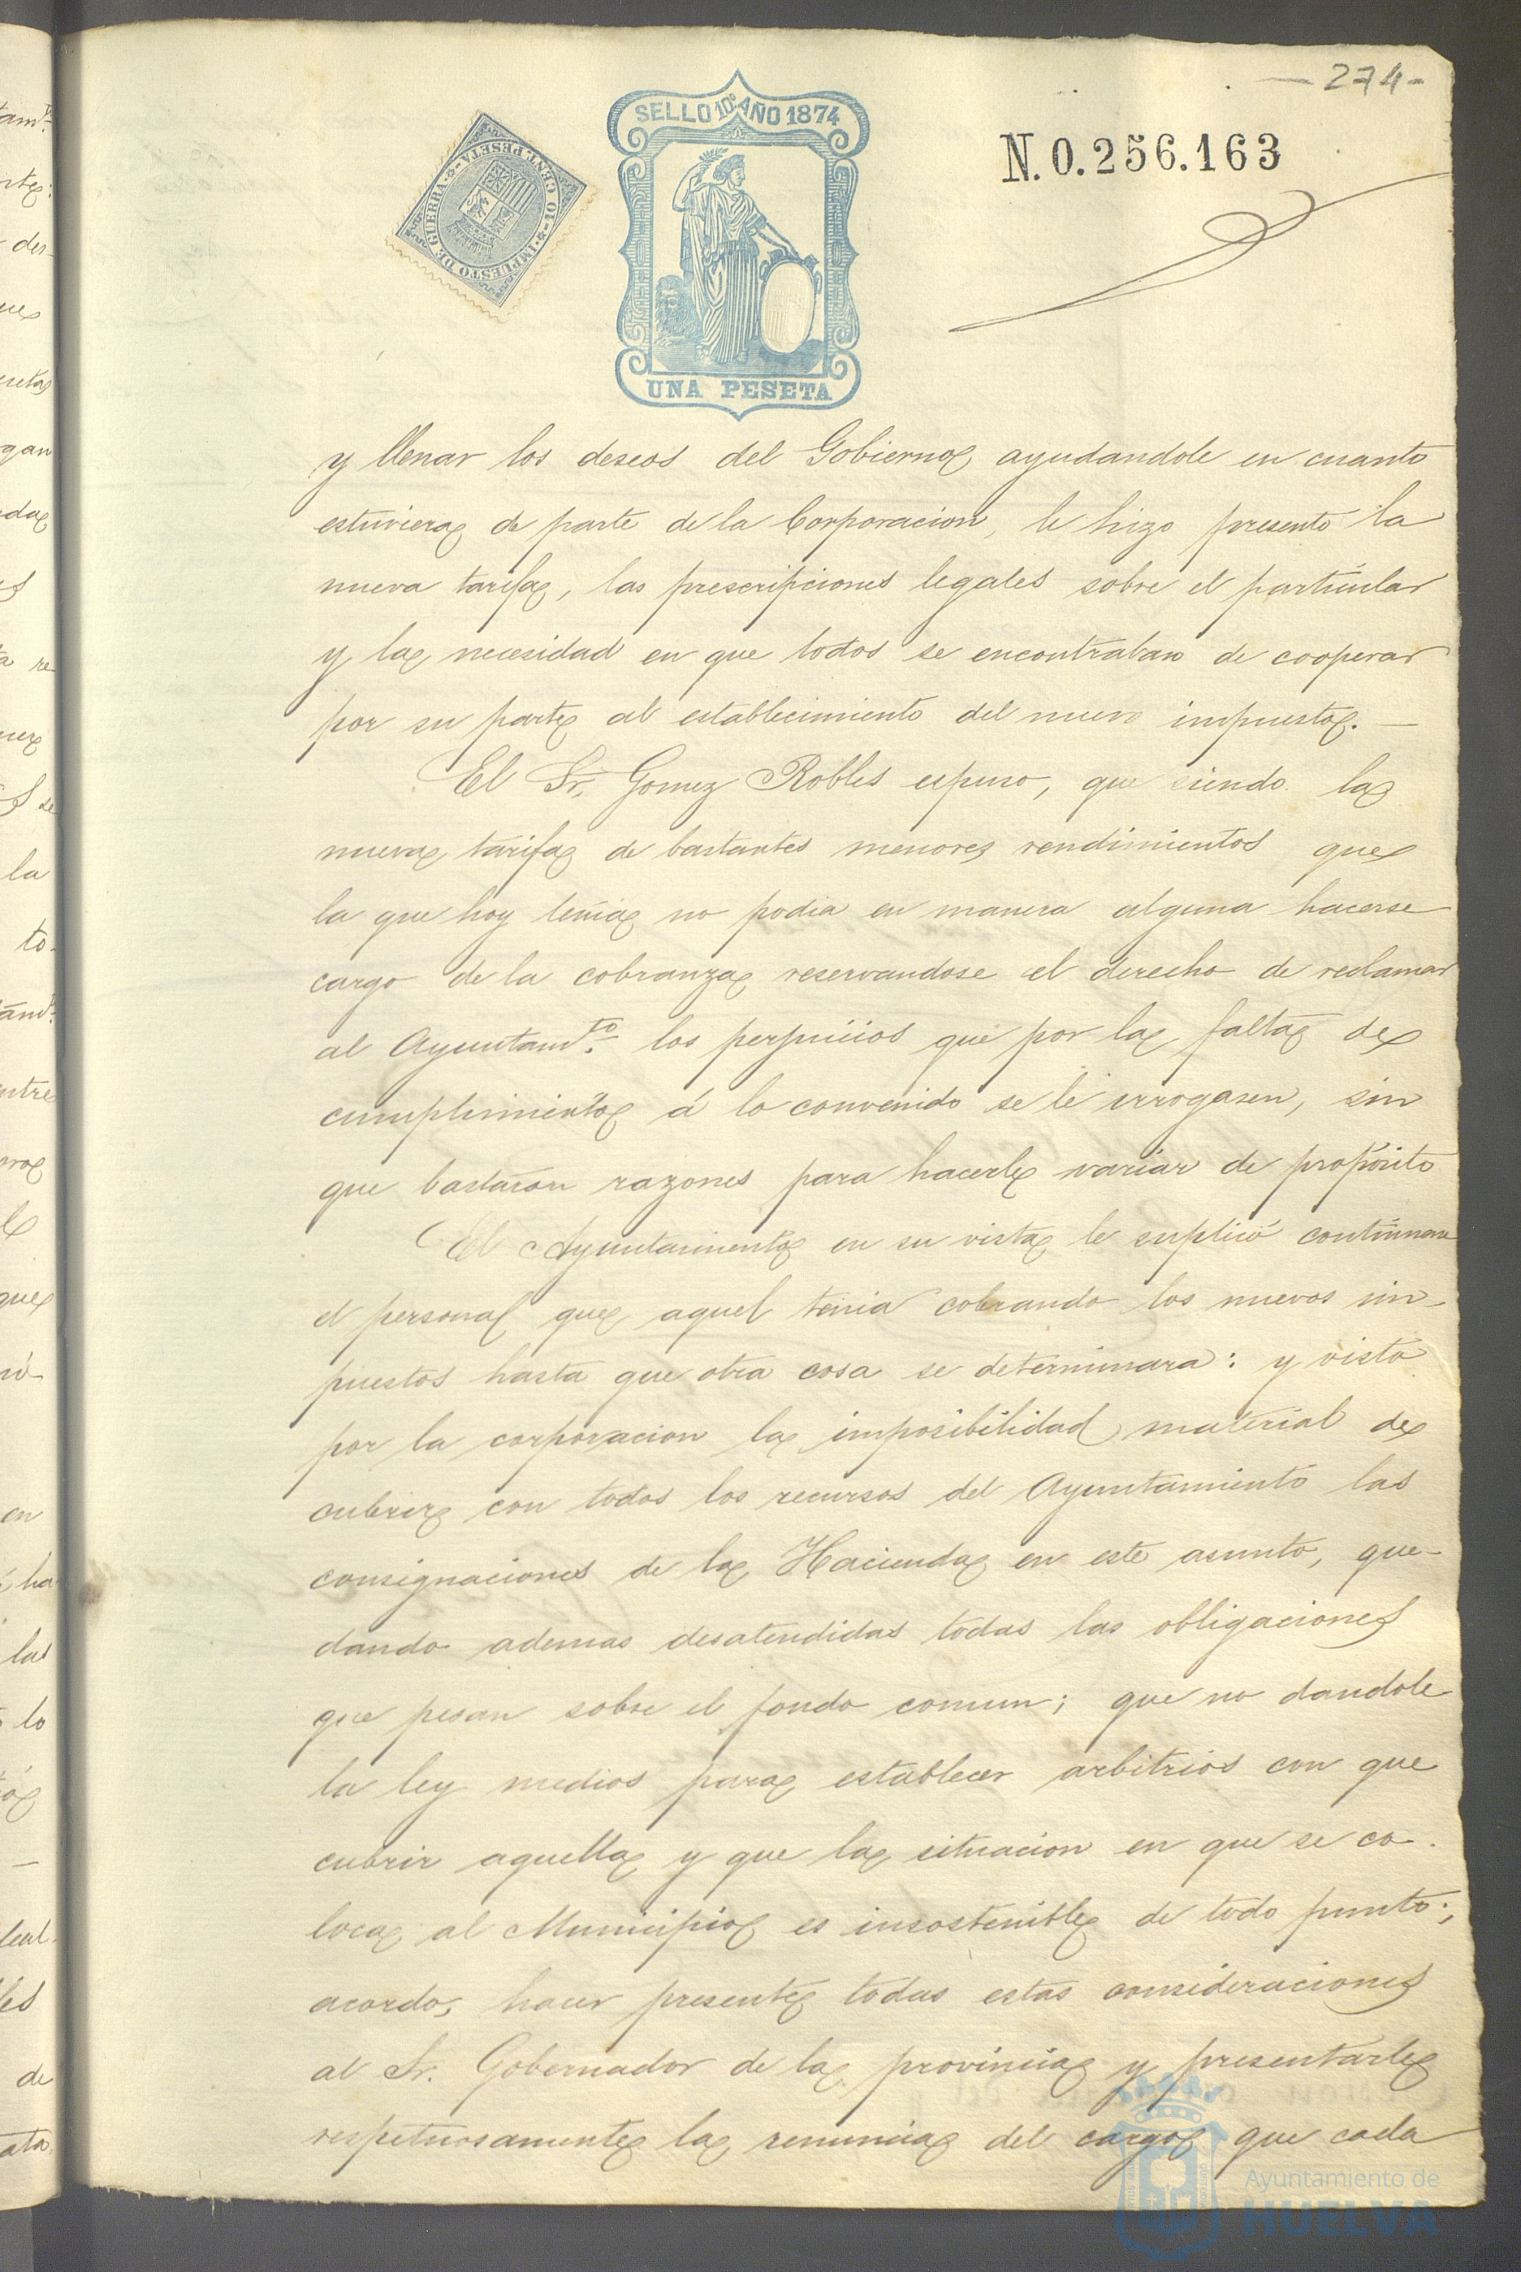 274
SELLO 10º AÑO 1874
N. 0.256.163
IMPUESTO DE GUERRA
10 CENT. PESETA
UNA PESETA
y llenar los deseos del Gobierno ayudandole en cuanto
estuviera de parte de la Corporacion, le hizo presente la
nueva tarifa, las prescripciones legales sobre el particular
y la necesidad en que todos se encontraban de cooperar
por su parte al establecimiento del nuevo impuesto. —
El Sr. Gomez Robles espuso, que siendo la
nueva tarifa de bastantes menores rendimientos que
la que hoy tenia no podia en manera alguna hacerse
cargo de la cobranza reservandose el derecho de reclamar
al Ayuntamto. los perjuicios que por la falta de
cumplimiento á lo convenido se le irrogasen, sin
que bastaran razones para hacerle variar de proposito
El Ayuntamiento en su vista le suplicó continuara
el personal que aquel tenia cobrando los nuevos im-
puestos hasta que otra cosa se determinara: y visto
por la corporacion la imposibilidad material de
cubrir con todos los recursos del Ayuntamiento las
consignaciones de la Hacienda en este asunto, que-
dando ademas desatendidas todas las obligaciones
que pesan sobre el fondo comun; que no dandole
la ley medios para establecer arbitrios con que
cubrir aquella y que la situacion en que se co-
loca al Municipio es insostenible de todo punto;
acordo, hacer presente todas estas consideraciones
al Sr. Gobernador de la provincia y presentarle
respetuosamente la renuncia del cargo que cada
Ayuntamiento de
HUELVA